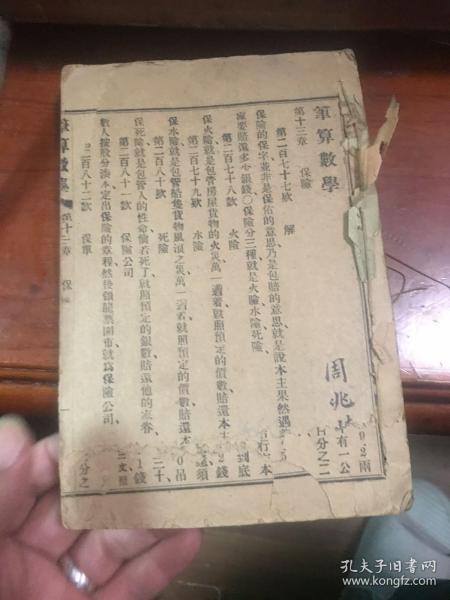 筆算數學
第十三章　保險
第二百七十七款　解
保險的保字並非是保佑的意思乃是包賠的意思就是說本主果然遇
寔要賠還多少銀錢〇保險分三種就是火險水險死險、
第二百七十八款　火險
保火險就是包管房屋貨物的火災萬一遇着就照預定的價數賠還本主
第二百七十九款　水險
保水險就是包管船隻貨物風浪之災萬一遇着就照預定的價數賠還本
第二百八十款　死險
保死險就是包管人的性命倘若死了就照預定的銀數賠還他的家眷、
第二百八十一款　保險公司
數人按股分湊本定出保險的章程然後領龍票開市就爲保險公司、
二百八十二款　保單
筆算數學　第十三章　保險
周兆
9.2兩
有一公
百分之二
本
到底
2錢
須
0吊
二十、
1錢
三文
分之
孔夫子旧书网
www.kongfz.com